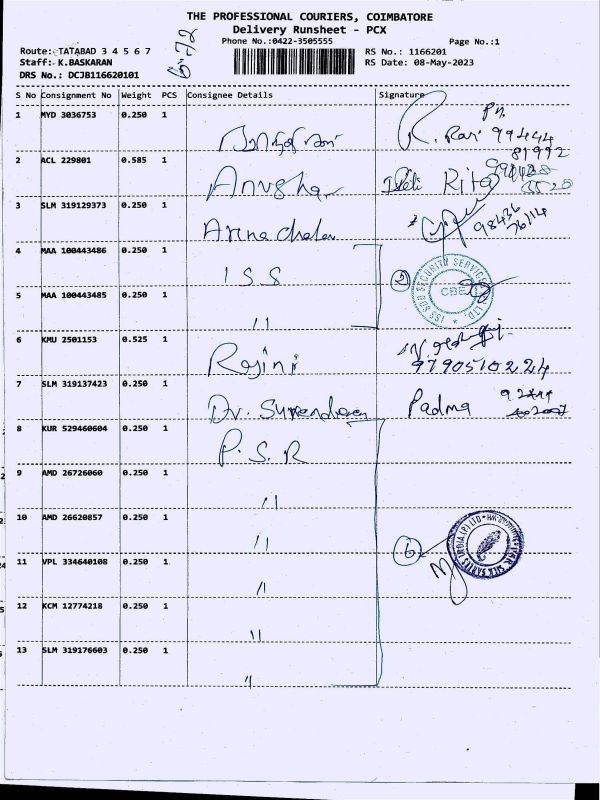 THE PROFESSIONAL COURIERS, COIMBATORE
Delivery Runsheet - PCX
Phone No.:0422-3505555
Page No.:1
Route: TATABAD 3 4 5 6 7
RS No.: 1166201
Staff: K.BASKARAN
RS Date: 08-May-2023
DRS No.: DCJB116620101
S No Consignment No Weight PCS Consignee Details Signature
1 MYD 3036753 0.250 1
R. Ravi 99444
81992
2 ACL 229801 0.585 1 Anusha Rita
3 SLM 319129373 0.250 1 Arunachalam 98436
76114
4 MAA 100443486 0.250 1 ISS 2
ISS SDB SECURITY SERVICES LTD.
CBE
5 MAA 100443485 0.250 1 "
6 KMU 2501153 0.525 1 Rajini
9790510224
7 SLM 319137423 0.250 1 Dr. Surendran Padma
8 KUR 529460604 0.250 1 P.S.R
9 AMD 26726060 0.250 1 "
10 AMD 26620857 0.250 1 "
6
11 VPL 334640108 0.250 1 "
12 KCM 12774218 0.250 1 "
13 SLM 319176603 0.250 1 "